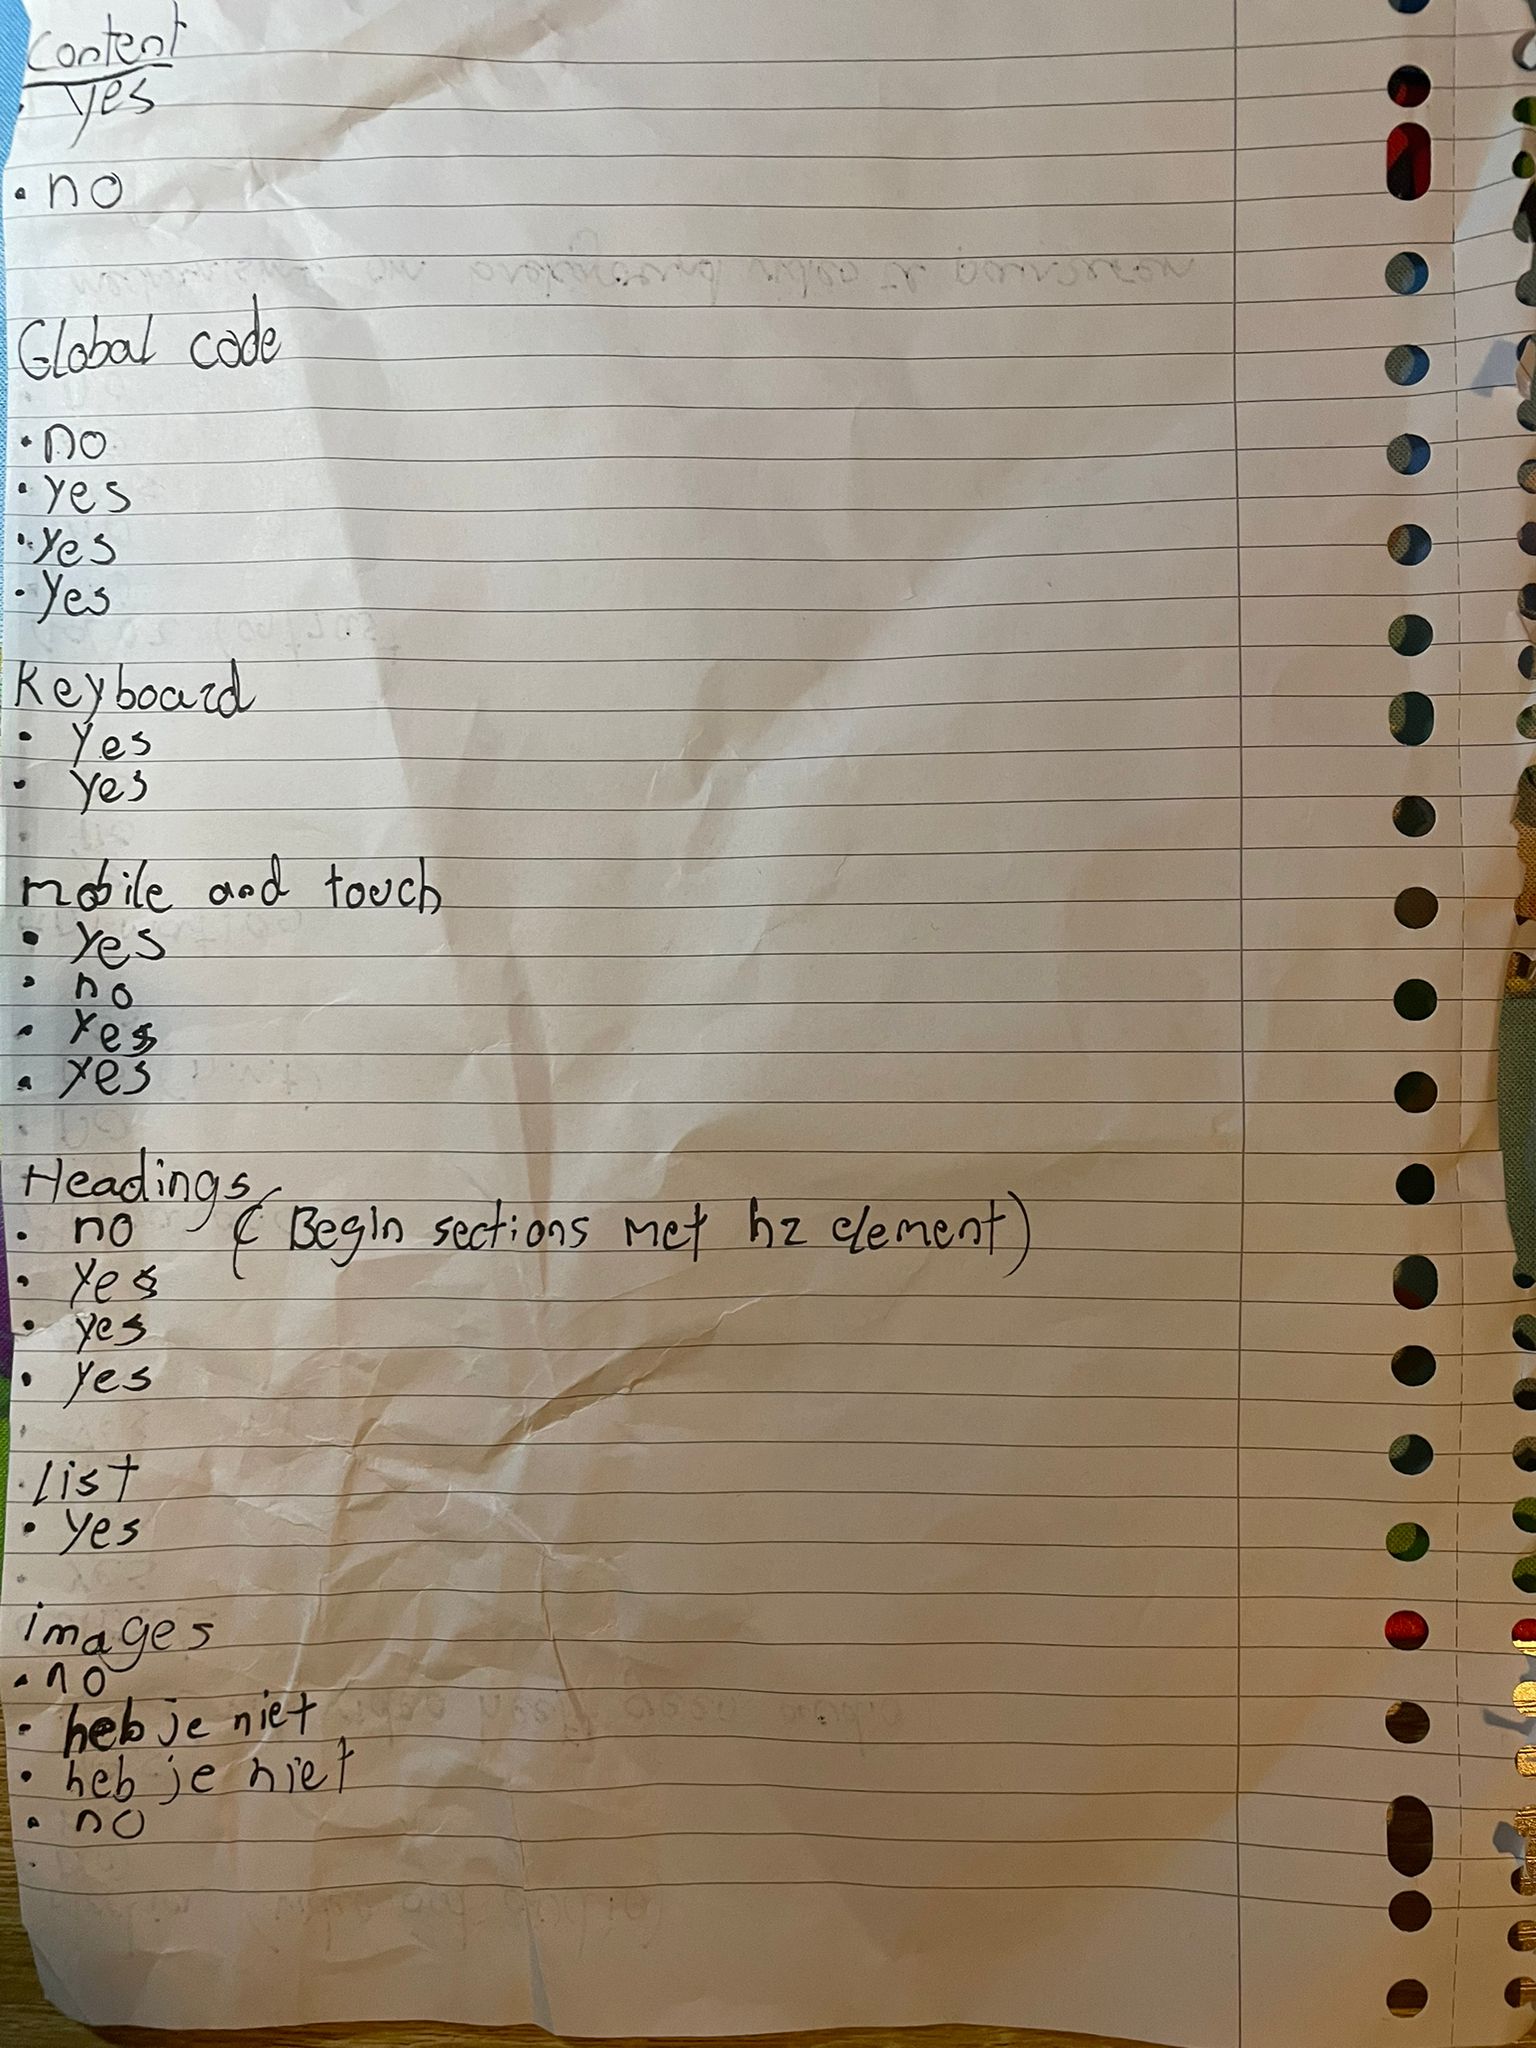 Content
· yes
· no
Global code
· no
· yes
· yes
· yes
Keyboard
· Yes
· yes
mobile and touch
· yes
· no
· Yes
· yes
Headings
· no ( Begin sections met h2 element)
· yes
· yes
· yes
list
· yes
images
· no
· heb je niet
· heb je niet
· no